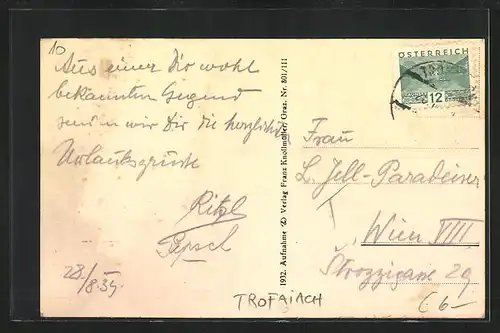 10
Aus einer Dir wohl
bekannten Gegend
senden wir Dir die herzlichsten
Urlaubsgrüsse
Ritzl
Pepsch
28/8.34
1932. Aufnahme u. Verlag Franz Knollmüller, Graz. Nr. 801/111
ÖSTERREICH
12
Frau
L. Jell-Paradeiser
Wien VIII
Strozzigasse 29
TROFAIACH
€6-